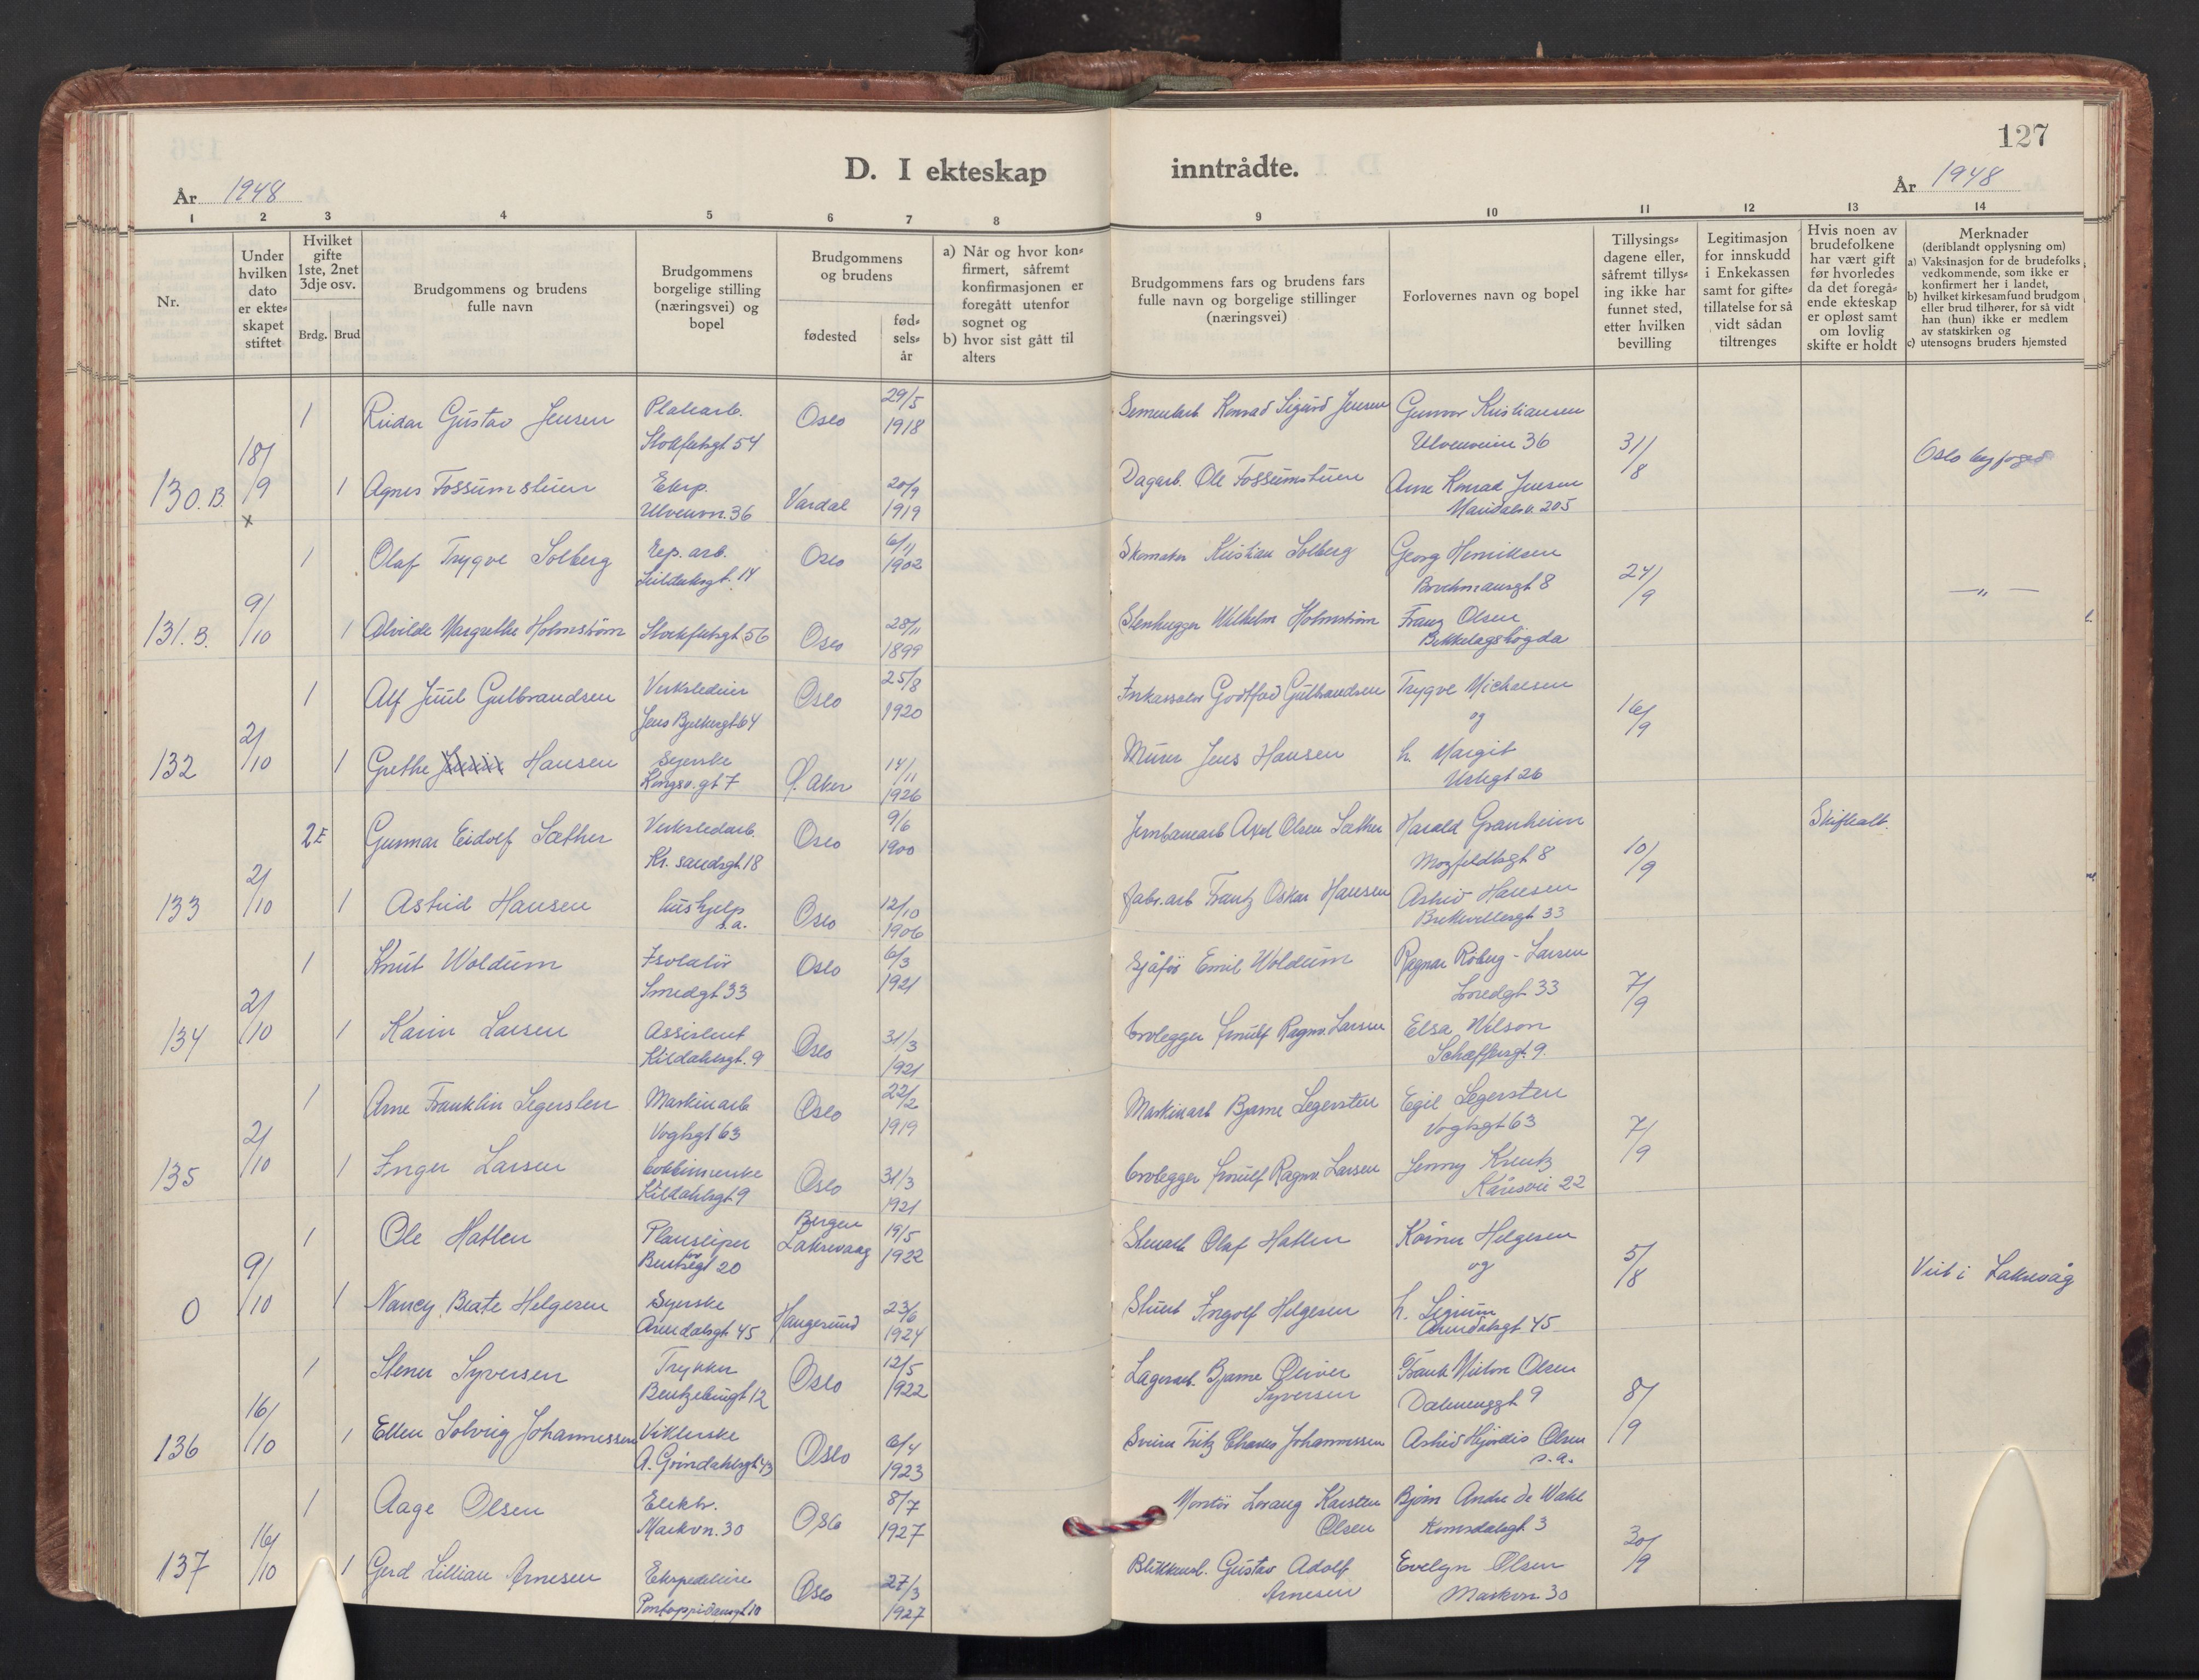 127
D. I ekteskap inntrådte.
År 1948
År 1948
1 2 3 4 5 6 7 8 9 10 11 12 13 14
Nr.
Under hvilken dato er ekte= skapet stiftet
Hvilket gifte 1ste, 2net 3dje osv.
Brdg. Brud
Brudgommens og brudens fulle navn
Brudgommens borgelige stilling (næringsvei) og bopel
Brudgommens og brudens
fødested
fød= sels= år
a) Når og hvor kon= firmert, såfremt konfirmasjonen er foregått utenfor sognet og
b) hvor sist gått til alters
Brudgommens fars og brudens fars fulle navn og borgelige stillinger (næringsvei)
Forlovernes navn og bopel
Tillysings= dagene eller, såfremt tillys= ing ikke har funnet sted, etter hvilken bevilling
Legitimasjon for innskudd i Enkekassen samt for gifte= tillatelse for så vidt sådan tiltrenges
Hvis noen av brudefolkene har vært gift før hvorledes da det foregå= ende ekteskap er opløst samt om lovlig skifte er holdt
Merknader (deriblandt opplysning om)
a) Vaksinasjon for de brudefolks vedkommende, som ikke er konfirmert her i landet,
b) hvilket kirkesamfund brudgom eller brud tilhører, for så vidt han (hun) ikke er medlem av statskirken og
c) utensogns bruders hjemsted
1 Reidar Gustav Jensen Platearb. Oslo 29/5 Sementarb. Konrad Sigurd Jensen Gunvor Kristiansen
Stockfletsgt 54 1918 Ulvenveien 36
130.B. 18/9 x 1 Agnes Fossumstuen Eksp. Vardal 20/9 Dagarb. Ole Fossumstuen Arne Konrad Jensen 31/8 Oslo byfoged
Ulvenvn. 36 1919 Maridalsv. 205
1 Olaf Trygve Solberg Rep. arb. Oslo 6/11 Skomaker Kristian Solberg Georg Henriksen
1902 Brochmansgt 8
131.B. 9/10 1 Alvilde Margrethe Holmstrøm Stockfletsgt 56 Oslo 28/11 Stenhugger Wilhelm Holmstrøm Franz Olsen 24/9 — " —
1899 Bekkelagshøgda
1 Alf Juul Gulbrandsen Oslo 25/8 Inkassator Godtfred Gulbrandsen Trygve Michaelsen
Jens Bjelkesgt 64 1920 og
132 2/10 1 Grethe Hansen Syerske Ø. Aker 14/11 Murer Jens Hansen h. Margit 16/9
Kongsv. gt 7 1926 Urtegt 26
2t Gunnar Eidolf Sæther Verkstedarb. Oslo 9/6 Jernbanearb Axel Olsen Sæther Harald Granheim Skifteatt.
Kr. sandsgt 18 1900 Mogfeldtsgt 8
133 2/10 1 Astrid Hansen hushjelp Oslo 12/10 Fabr.arb Frantz Oskar Hansen Astrid Hansen 10/9
s.a. 1906 33
1 Knut Woldum Isolatør Oslo 6/3 Sjåfør Emil Woldum Ragnar Roberg-Larsen
Smedgt 33 1921 Smedgt 33
134 2/10 1 Karin Larsen Assistent Oslo 31/3 Brolegger Arnulf Ragnv. Larsen Elsa Nilson 7/9
Kildahlsgt. 9 1921 Schæffersgt. 9.
1 Arne Franklin Segersten Maskinarb Oslo 22/2 Maskinarb Bjarne Segersten Egil Segersten
Vogtsgt 63 1919 Vogtsgt 63
135 2/10 1 Inger Larsen Oslo 31/3 Brolegger Arnulf Ragnv Larsen Jenny Kreutz 7/9
Kildahlsgt 9 1921 22
1 Ole Hatlen Planseiper Bergen Laksevaag 19/5 Olaf Hatlen Helgesen
20 1922 og
0 9/10 1 Nancy Beate Helgesen Syerske Haugesund 23/6 Stuert Ingolf Helgesen h. Signum 5/8 Viet i Laksevåg
Arendalsgt 45 1924 Arendalsgt. 45
1 Stener Syversen Trykker Oslo 12/5 Lagerarb. Bjarne Oliver Frank Milton Olsen
Bentzebrugt 12 1922 Syversen Dælenenggt 9
136 16/10 1 Ellen Solveig Johannessen Viklerske Oslo 6/4 Fritz Charles Johannessen Astrid Hjørdis Olsen 8/9
A. Grindahlsgt 43 1923 s.a.
1 Aage Olsen Elektr. Oslo 8/7 Montør Lorang Karsten Bjørn Andre de Wahl
Markvn. 30 1927 Olsen Romsdalsgt. 3
137 16/10 1 Gerd Lillian Arnesen Ekspeditrise Oslo 27/3 Blikkensl. Gustav Adolf Evelyn Olsen 30/9
Pontoppidansgt 10 1927 Arnesen Markvn. 30